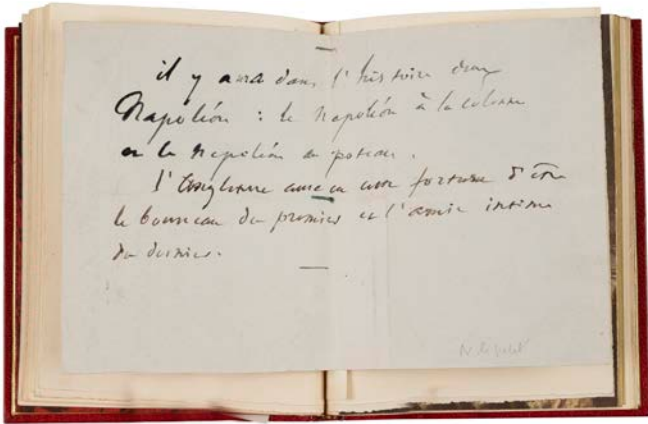 il y aura dans l'histoire deux
Napoléon : le Napoléon à la colonne
et le Napoléon au poteau.
l'Angleterre aura eu cette fortune d'être
le bourreau du premier et l'amie intime
du dernier.
N. le petit